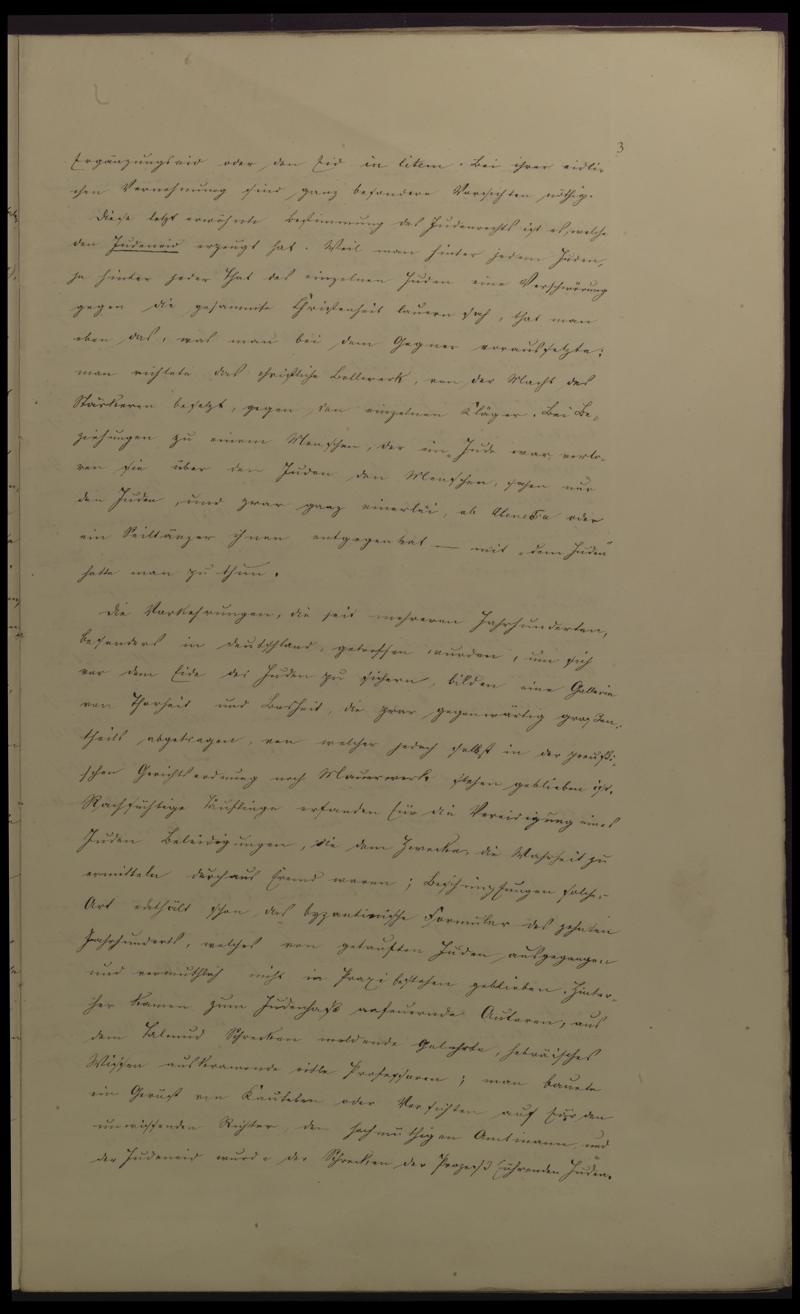 3
Ergänzungseid oder den Eid in litem. Bei ihrer eidli-
chen Vernehmung sind ganz besondere Vorsichten nöthig.
Diese letzt erwähnte Bestimmung des Judenrechts ist es, welche
den Judeneid erzeugt hat. Weil man hinter jedem Juden,
ja hinter jeder That des einzelnen Juden eine Verschwörung
gegen die gesammte Christenheit lauern sah, that man
eben das, was man bei dem Gegner voraussetzte:
man richtete das christliche Bollwerk, von der Macht des
Stärkeren besetzt, gegen den einzelnen Kläger. Bei Be-
ziehungen zu einem Menschen, der ein Jude war, verlo-
ren sie über den Juden den Menschen, sahen nur
den Juden, und zwar ganz einerlei, ob oder
ein Seiltänzer ihnen entgegentrat — mit „dem Juden"
hatte man zu thun.
Die Vorkehrungen, die seit mehreren Jahrhunderten,
besonders in Deutschland, getroffen wurden, um sich
vor dem Eide des Juden zu sichern, bilden eine Gallerie
von Thorheit und Bosheit, die zwar gegenwärtig großen-
theils abgetragen, von welcher jedoch selbst in der preußi-
schen Gerichtsordnung noch Mauerwerk stehen geblieben ist.
Rachsüchtige Täuflinge erfanden für die Vereidigung eines
Juden Beleidigungen, die dem Zwecke, die Wahrheit zu
ermitteln durchaus fremd waren; Beschimpfungen solcher
Art enthält schon das byzantinische Formular des zehnten
Jahrhunderts, welches von getauften Juden ausgegangen
und vermuthlich nicht in Praxi bestehen geblieben. Hinter-
her kamen zum Judenhaß anfeuernde Autoren, aus
dem Talmud Schrecken meldende Gelehrte, hebräisches
Wissen auskramende eitle Professoren; man bauete
ein Gerüst von Kautelen oder Vorsichten auf für den
unwissenden Richter, den hochmüthigen Amtmann und
der Judeneid wurde der Schrecken der Prozeß führenden Juden.